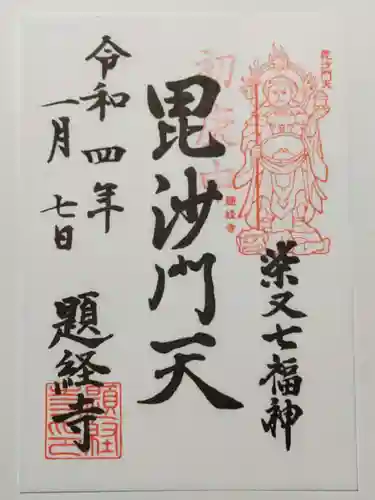 毘沙門天
初庚申
題経寺
柴又七福神
毘沙門天
令和四年
一月七日
題経寺